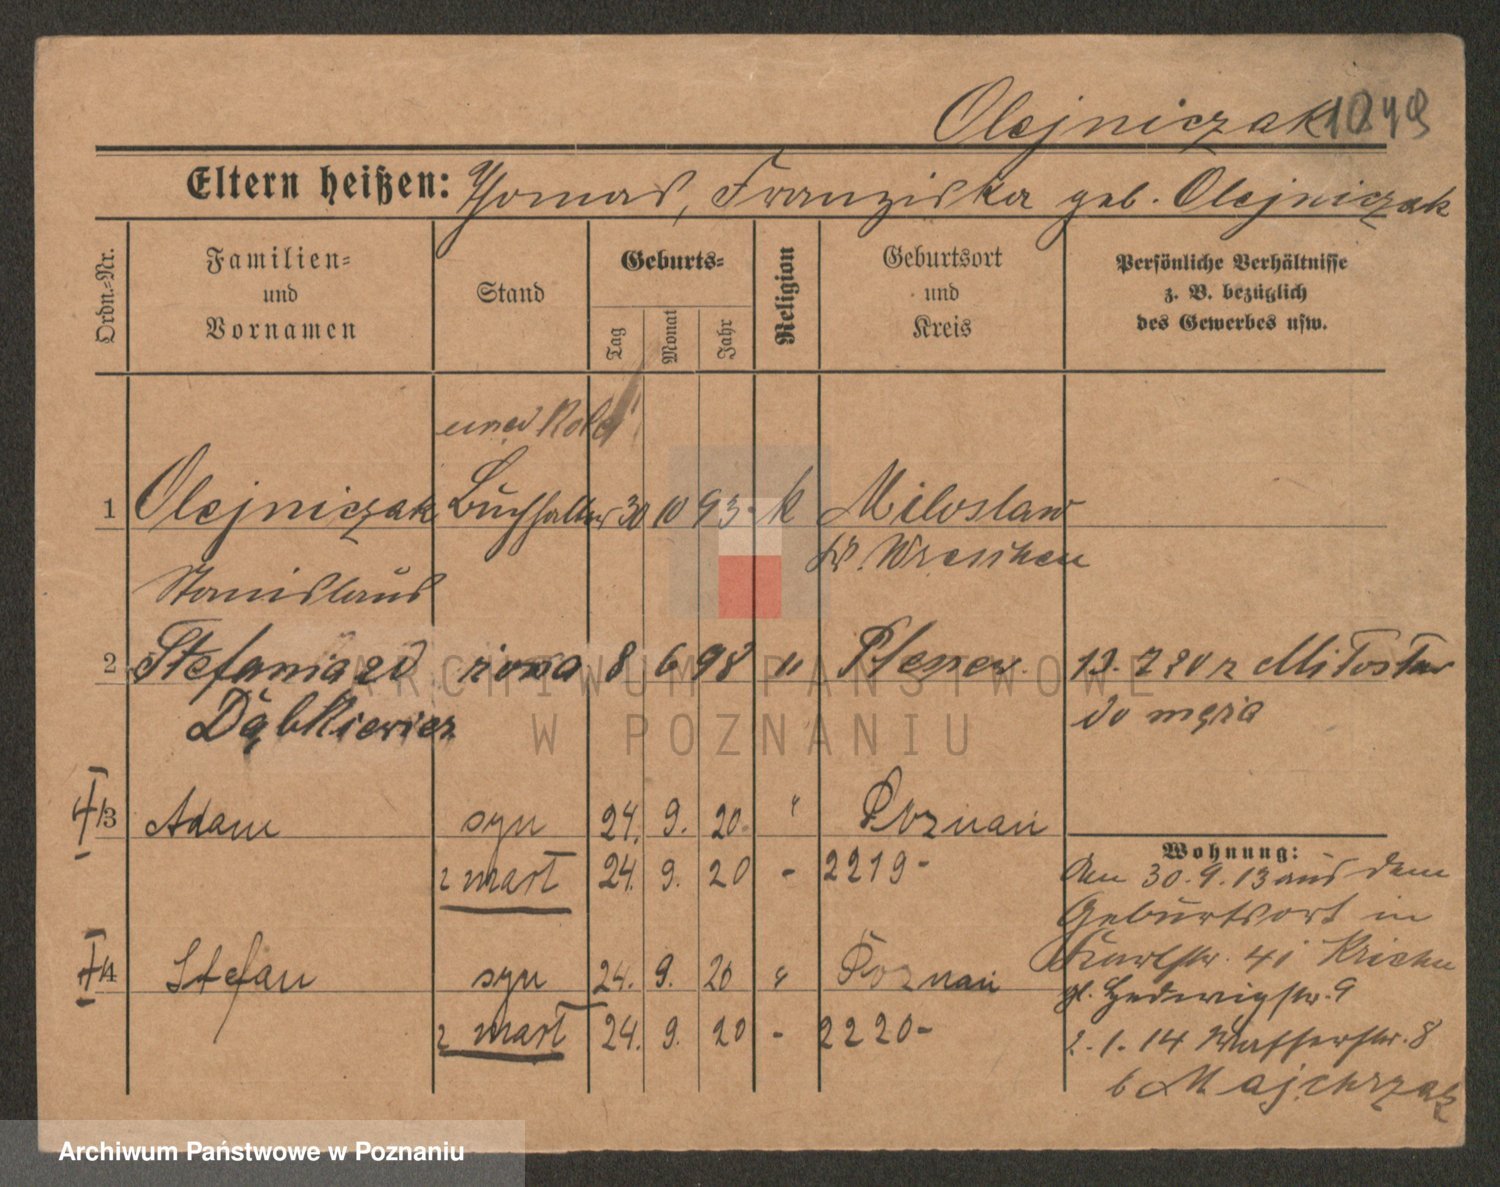 Olejniczak 1049
Eltern heißen: Thomas, Franziska geb. Olejniczak
Ordn.-Nr.
Familien-
und
Vornamen
Stand
Geburts-
Tag
Monat
Jahr
Religion
Geburtsort
und
Kreis
Persönliche Verhältnisse
z. B. bezüglich
des Gewerbes usw.
1 Olejniczak Buchhalter 30 10 93 k Miloslaw
Kr. Wreschen
Stanislaus
2 Stefania zd żona 8 6 98 " Pleszew 13. 7 20 z Miłosław
Dąbkiewicz do męża
3 Adam syn 24. 9. 20. " Poznań
zmarł 24. 9. 20 - 2219-
4 Stefan syn 24. 9. 20 " Poznań
zmarł 24. 9. 20 - 2220-
Wohnung:
Am 30.9.13 aus dem
Geburtsort in
Karlstr. 41
Hedwigstr. 9
2.1.14 Wasserstr. 8
b Majchrzak
ARCHIWUM PAŃSTWOWE
W POZNANIU
Archiwum Państwowe w Poznaniu